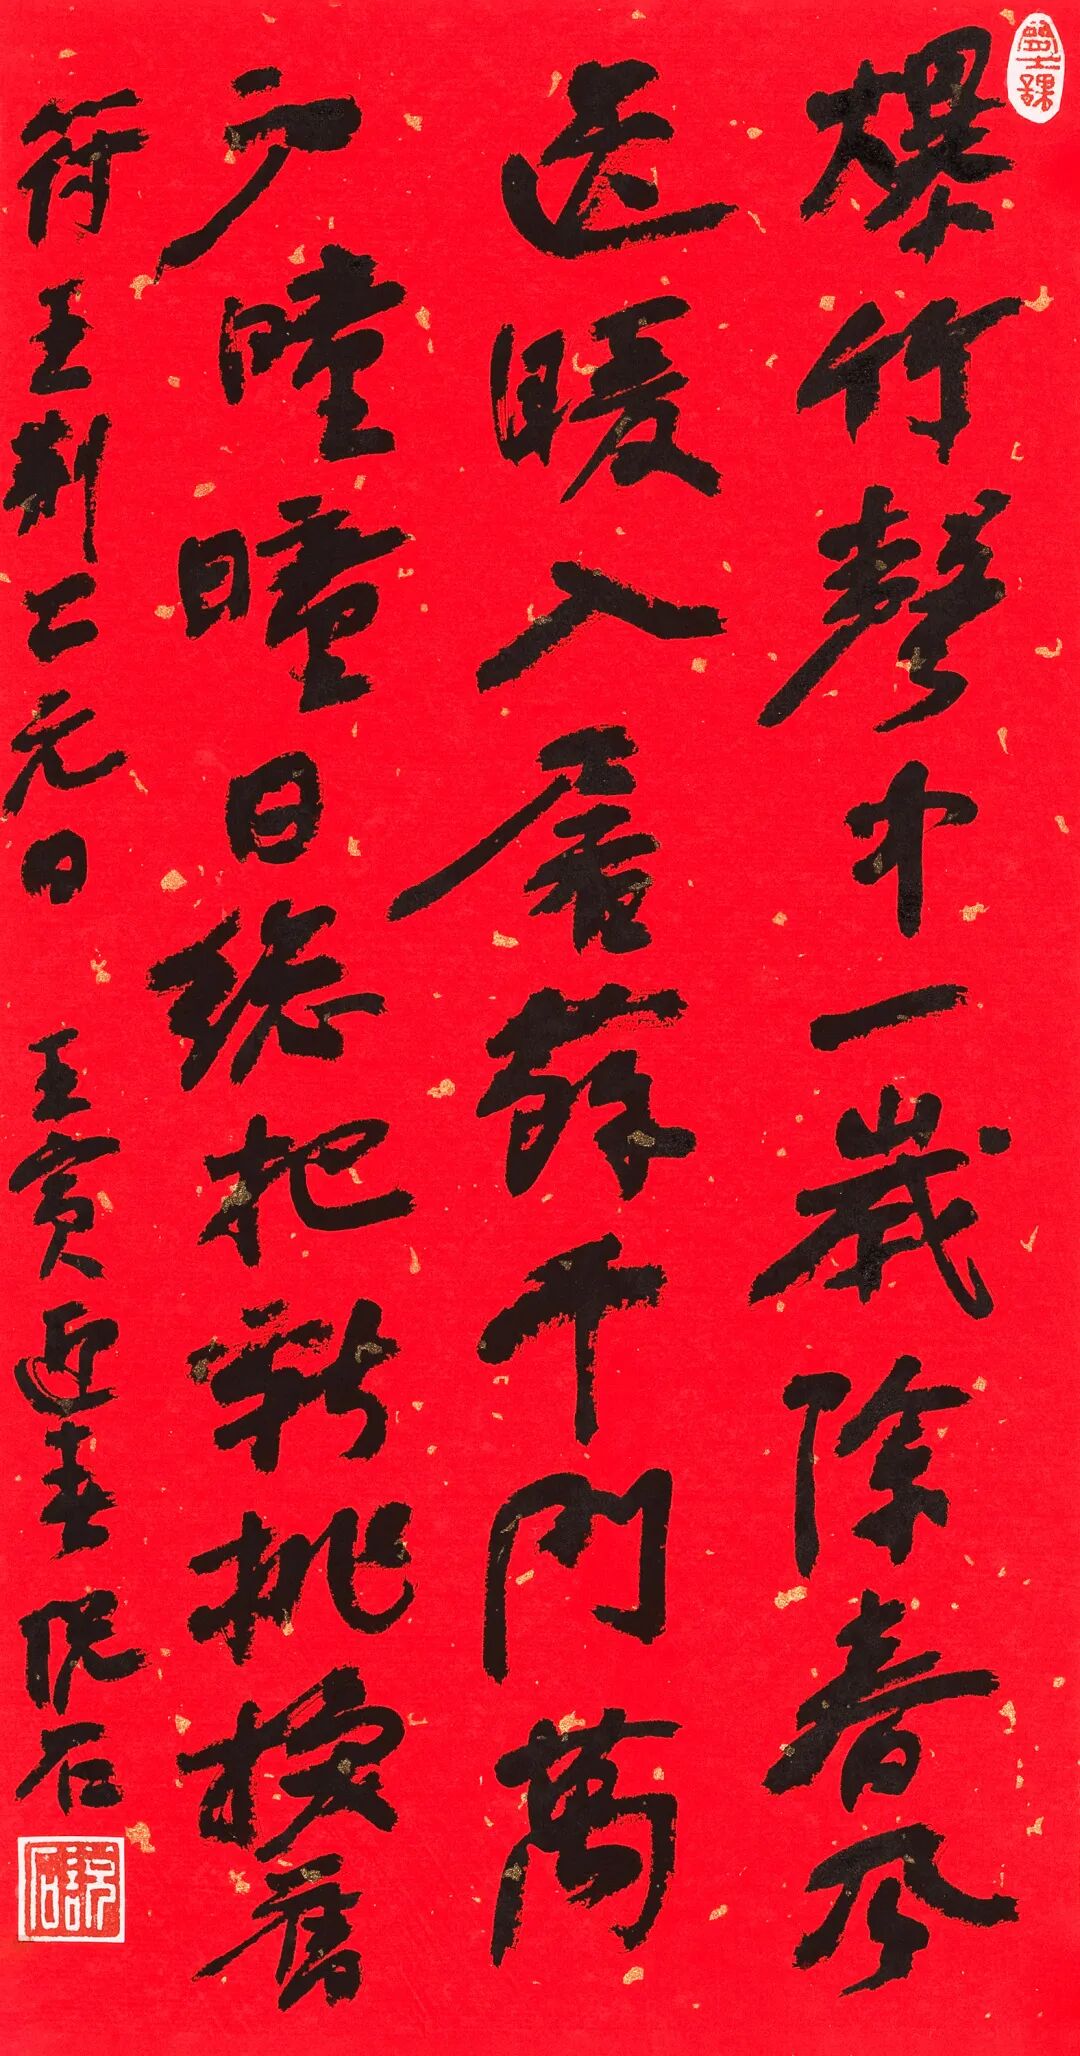 爆竹聲中一歲除春風
送暖入屠蘇千門萬
戶曈曈日總把新桃換舊
符 王荆公元日 壬寅迎春 說石
說石